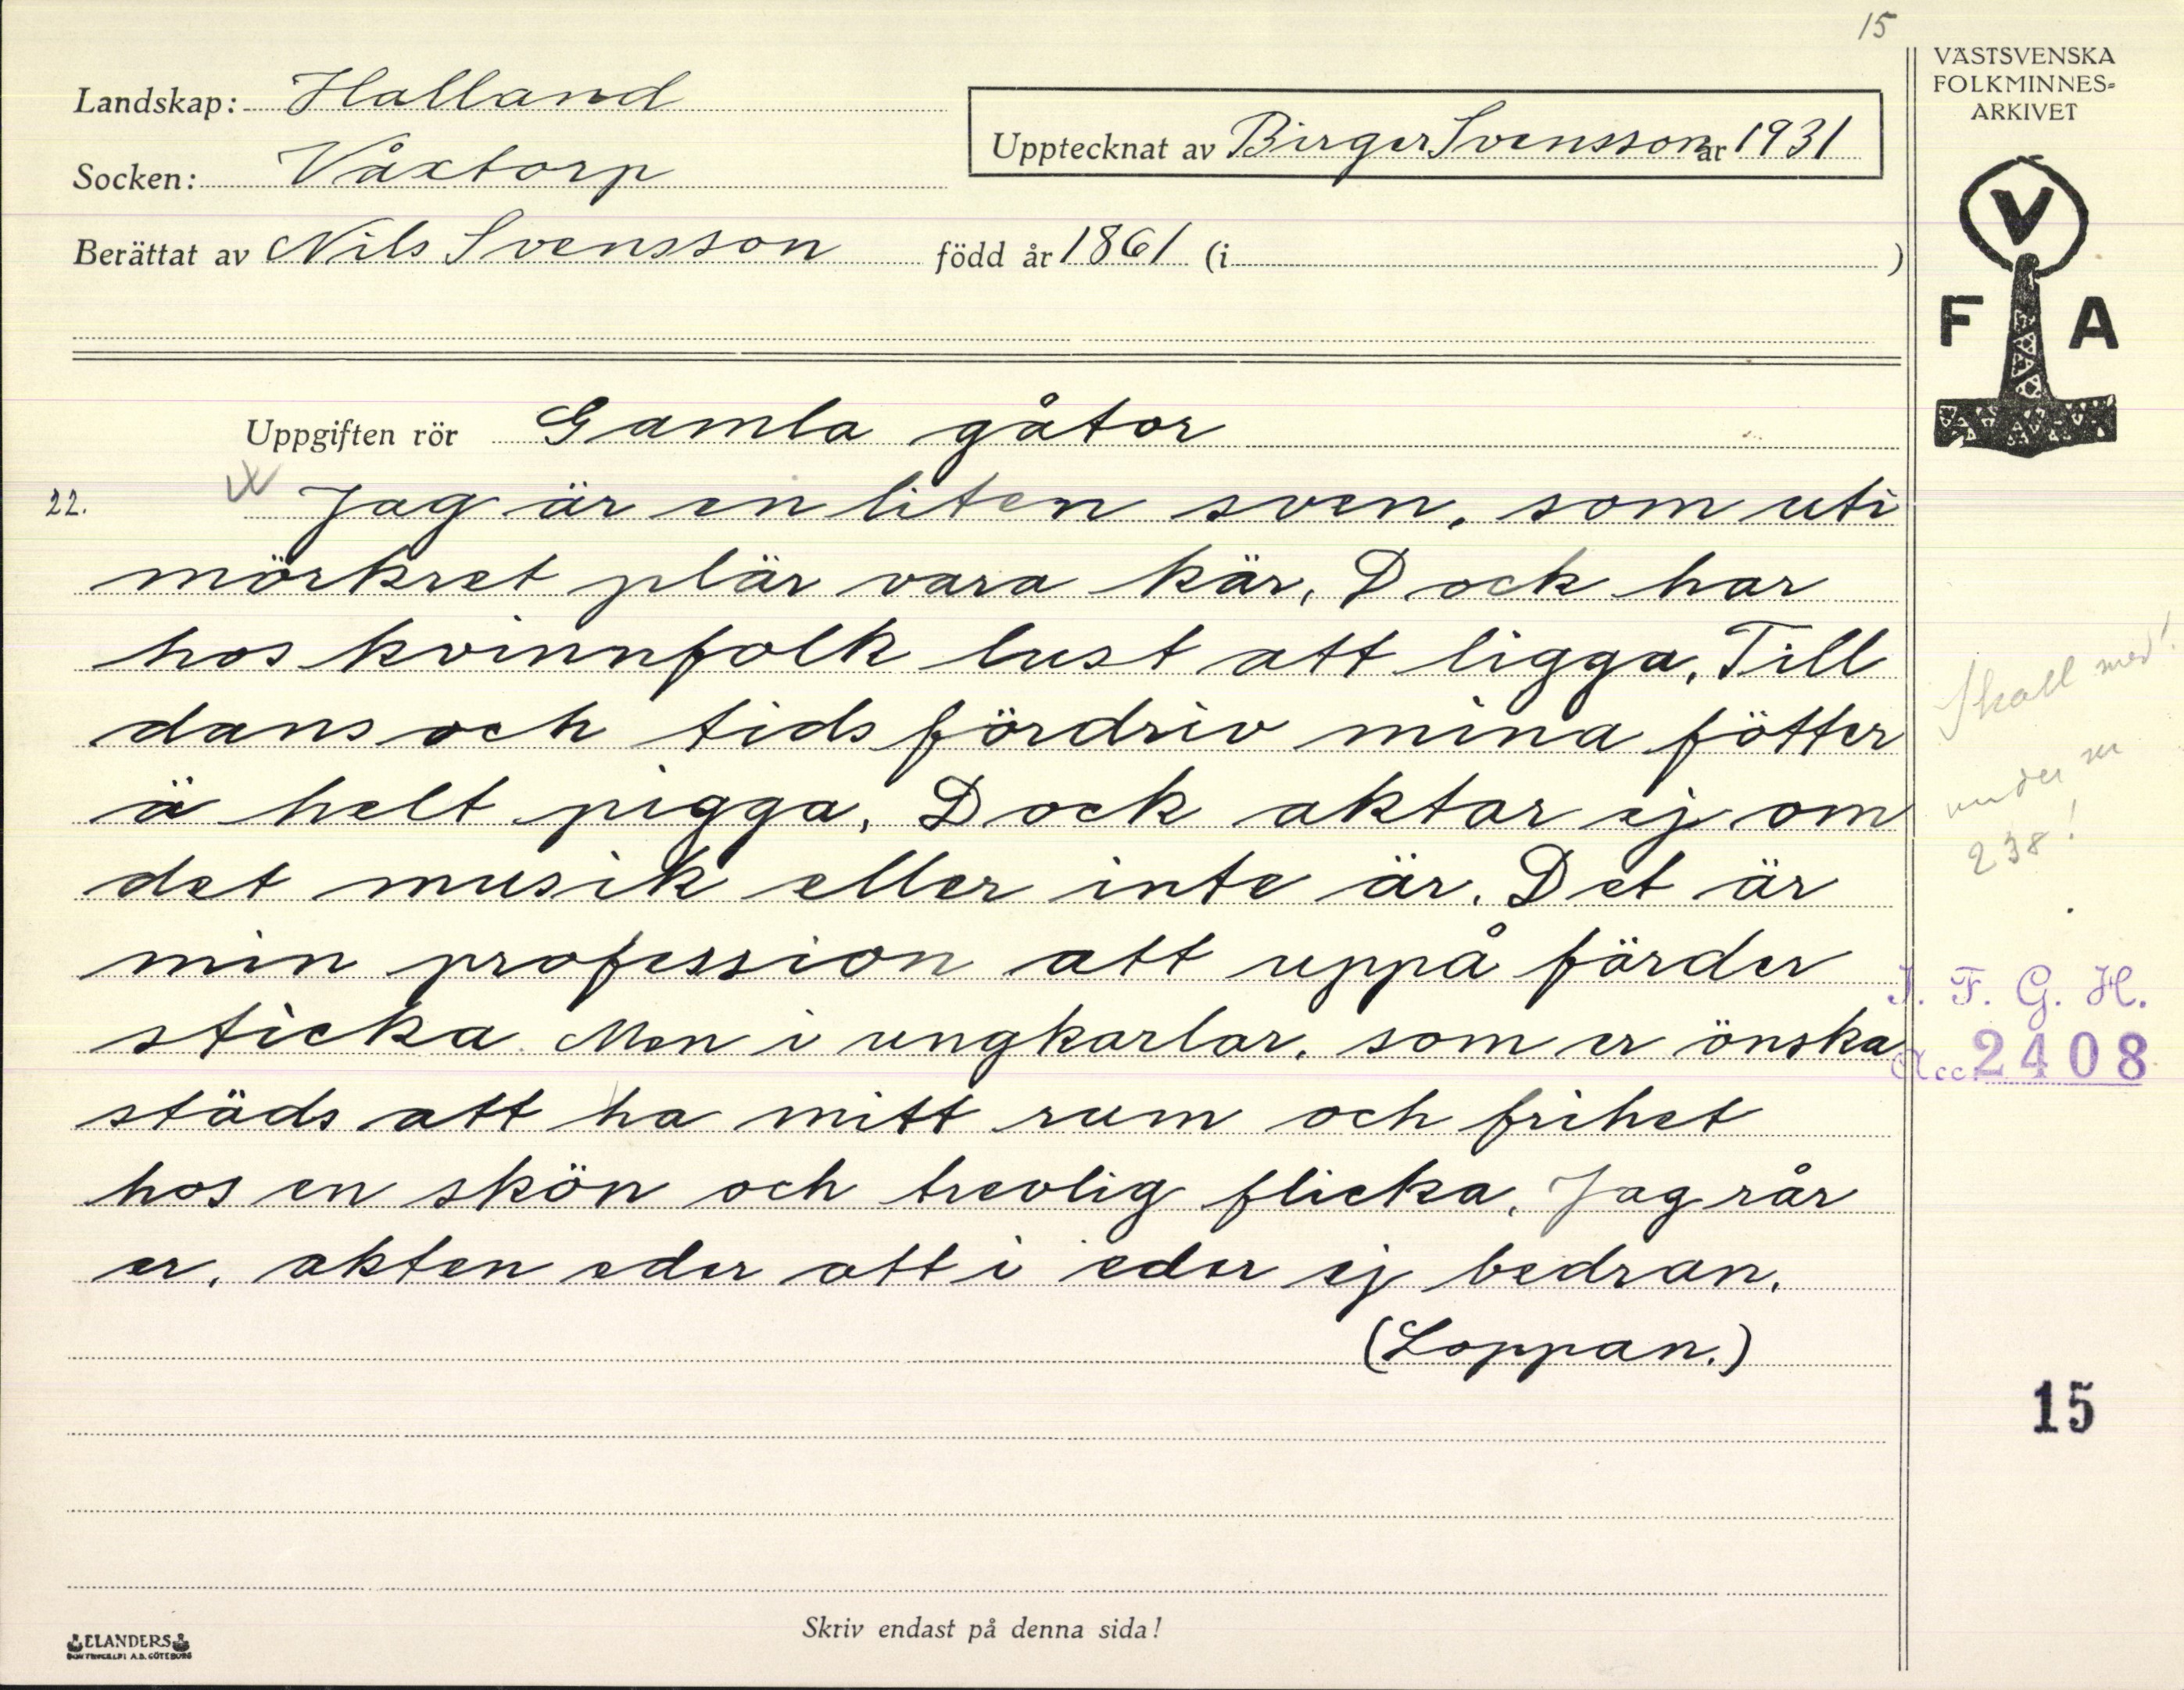 15
VÄSTSVENSKA
FOLKMINNES-
ARKIVET
Landskap: Halland
Upptecknat av Birger Svensson år 1931
Socken: Våxtorp
Berättat av Nils Svensson född år 1861 (i )
V
F A
Uppgiften rör Gamla gåtor
22. Jag är en liten sven, som uti
mörkret plär vara kär, Dock har
hos kvinnfolk lust att ligga, Till
dans och tids fördriv mina fötter
ä helt pigga, Dock aktar ej om
det musik eller inte är. Det är
min profession att uppå färder
sticka. Men i ungkarlar, som er önska
städs att ha mitt rum och frihet
hos en skön och trevlig flicka, Jag rår
er, akten eder att i eder ej bedran,
(Loppan.)
Skall med!
under
238!
I. F. G. H.
Acc. 2408
15
Skriv endast på denna sida!
ELANDERS
BOKTRYCKERI A.B. GÖTEBORG